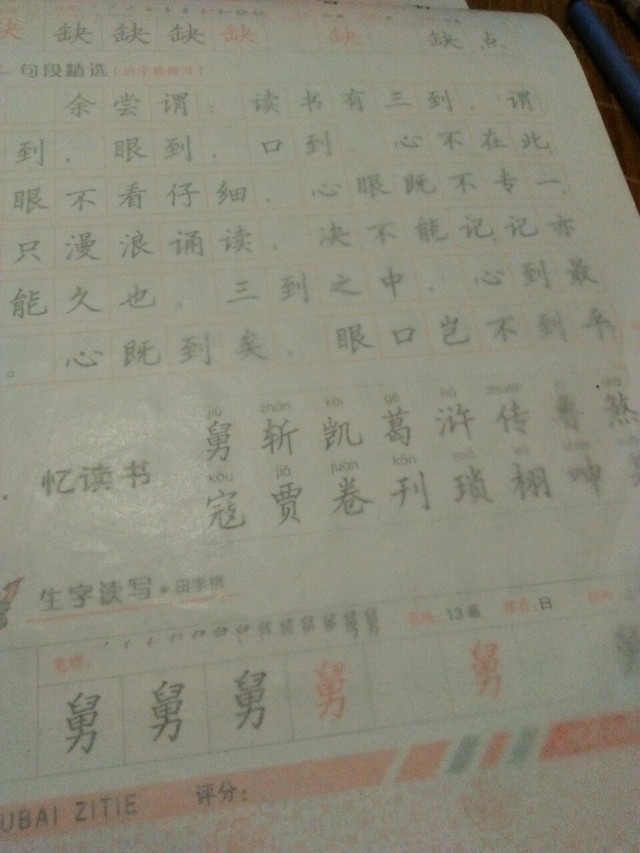 缺 缺 缺 缺 缺 缺 点
句段精选
余尝谓：读书有三到，谓
到，眼到，口到。心不在此，
眼不看仔细，心眼既不专一，
只漫浪诵读，决不能记，记亦
能久也。三到之中，心到最
。心既到矣，眼口岂不到乎
jiù zhǎn kǎi gě hǔ zhuàn
舅 斩 凯 葛 浒 传 鲁 煞
忆读书
kòu jiǎ juàn kān
寇 贾 卷 刊 琐 栩 呻
生字读写·田字格
笔顺： 13画 部首：日
舅 舅 舅 舅 舅
UBAI ZITIE 评分：